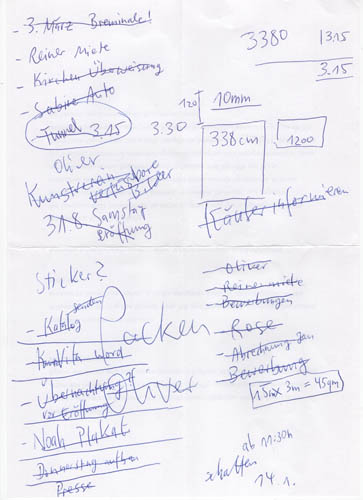 - 3. März Breminale!
- Reiner Miete
- Kirchen Überweisung
- Sabine Auto
- Tunnel 3.15
3.30
Oliver
Kunstverein
verfügbare
Bilder
31.8. Samstag
Eröffnung
3380 13.15
3.15
120
10mm
338cm
1200
Läufer informieren
Sticker?
- Katalog
senden
- KunVita Word
- Übernachtung?
vor Eröffnung
- Noah Plakat
- Donnerstag aufbau
Presse
Packen
Oliver
- Oliver
- Reiner miete
- Bewerbungen
- Rose
- Abrechnung
- Bewerbung
15m x 3m = 45qm
ab 11:30h
schaffen
14.1.